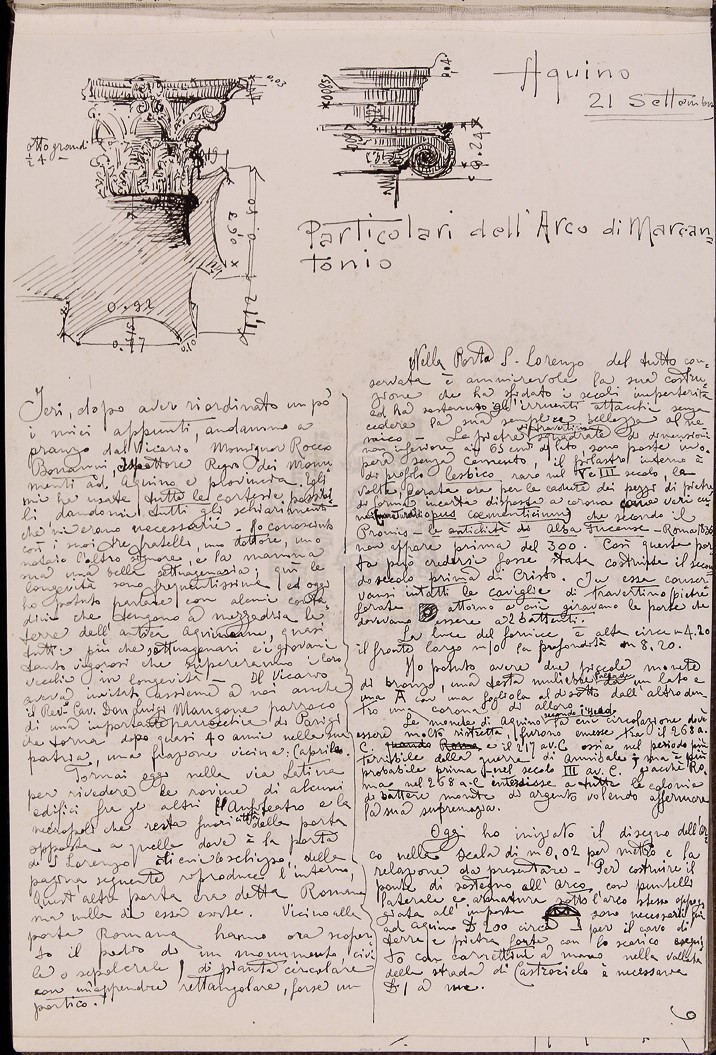 Aquino
21 Settembre
0.03
otto grandi
0.085
0.24
0.92
0.77
2.90
Particolari dell'Arco di Marcan-
tonio
Ieri, dopo aver riordinato un pò
i miei appunti, andammo a
pranzo dal Vicario Monsignor Rocco
Bonanni Regio dei Monu
menti ad Aquino e provincia. Egli
mi ha usate tutte le cortesie possibi
li dandomi tutti gli schiarimenti
che mi erano necessari. Ho conosciuto
così i suoi tre fratelli, uno dottore, uno
notaio l'altro signore, e la mamma
sua una bella settuagenaria; qui le
longevità sono frequentissime ed oggi
ho potuto parlare con alcuni conta
dini che tengono a mezzadria le
terre dell'antica Aquino, quasi
tutti più che settuagenari e giovani
tanto vigorosi che supereranno i loro
vecchi in longevità - Il Vicario
aveva invitato assieme a noi anche
il Rev. Cav. Don Luigi Mangone parroco
di una importante parrocchia di Parigi
che torna dopo quasi 40 anni nella sua
patria, una frazione vicina: Caprile.
Tornai oggi nella via Latina
per rivedere le rovine di alcuni
edifici fra gli altri l'Anfiteatro e la
necropoli che resta fuori città della porta
opposta a quella dove è la porta
di S. Lorenzo di cui lo schizzo della
pagina seguente riproduce l'interno,
Quest'altra porta era detta Romana
ma nulla di essa esiste. Vicino alla
porta Romana hanno ora scoper
to il piedio di un monumento, civi
le o sepolcrale, di pianta circolare
con un'appendice rettangolare, forse un
portico.
Nella Porta S. Lorenzo del tutto con-
servata è ammirevole la sua costru-
zione che ha sfidato i secoli imperterrita
ed ha sostenuto gli irruenti attacchi senza
cedere la sua semplice bellezza al ne
mico - Le pietre squadrate di travertino di dimensioni
non inferiori ai 65 cm di lato sono poste in o-
pera senza cemento, il pilastro interno è
di profilo lesbico raro nel II e III secolo, la
volta forata ora per le cadute dei pezzi di pietra
di forma incerta disposte a corona come veri cu
nei opus caementicium che secondo il
Promis - Le antichità di Alba Fucense - Roma 1836
non appare prima del 300. Così questa por
ta può credersi fosse stata costruita il secon
do secolo prima di Cristo. In essa conser
vansi infatti le caviglie di travertino (pietre
forate attorno a cui giravano le porte che
dovevano essere a 2 battenti.
La luce del fornice è alta circa m 4.20
il fronte largo m/o la profondità m 8.20.
Ho potuto avere due piccole monete
di bronzo, una testa muliebre da un lato e
una A con una fogliola al disotto dall'altro den-
tro una corona di alloro.
Le monete di Aquino la cui circolazione deve
essere molto ristretta, furono emesse tra il 268 a.
C. e il 217 av. C ossia nel periodo più
terribile della guerra di Annibale; ma è più
probabile prima, nel secolo III av. C. giacchè Ro-
ma nel 268 a.C. a tutte le colonie
di battere monete di argento volendo affermare
la sua supremazia.
Oggi ho iniziato il disegno dell'Ar
co nella scala di m 0,02 per metro e la
relazione da presentare - Per costruire il
ponte di sostegno all'Arco con puntelli
laterale e armatura sotto l'arco stesso appog
giata all'imposte sono necessari
ad Aquino L. 100 circa per il cavo di
terra e pietra forte con lo scarico esegui
to con carrettini a mano nella vallata
della strada di Castrocielo è necessaria
6